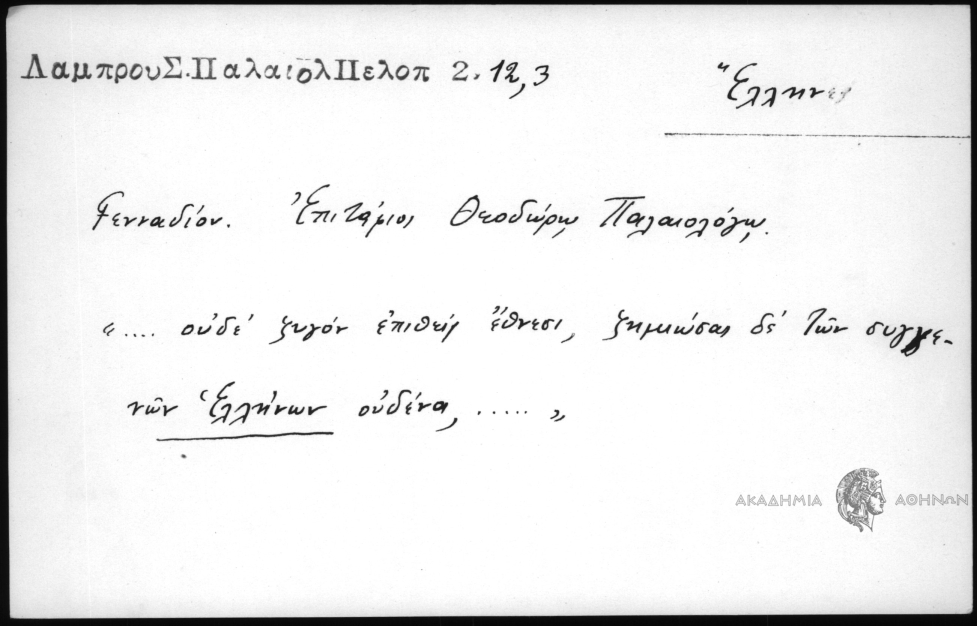 ΛαμπρουΣ.ΠαλαιολΠελοπ 2. 12,3
Ἕλληνες
Γενναδίου. Ἐπιτάφιος Θεοδώρῳ Παλαιολόγῳ.
«.... οὐδὲ ζυγὸν ἐπιθεὶς ἔθνεσι, ζημιώσας δὲ τῶν συγγε-
νῶν Ἑλλήνων οὐδένα, ..... »
ΑΚΑΔΗΜΙΑ ΑΘΗΝΩΝ